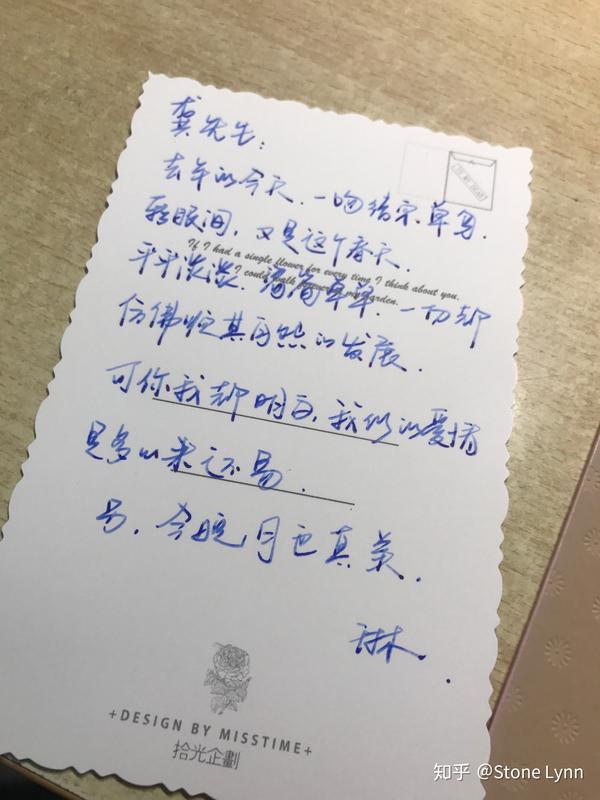 龚先生:
去年的今天.一吻结束单身.
转眼间,又是这个春天.
If I had a single flower for every time I think about you,
I could walk forever in my garden.
平平淡淡.简简单单.一切都
仿佛顺其自然的发展.
可你我都明白,我们的爱情
是多么来之不易.
另.今晚月色真美.
琳.
+DESIGN BY MISSTIME+
拾光企劃
知乎 @Stone Lynn